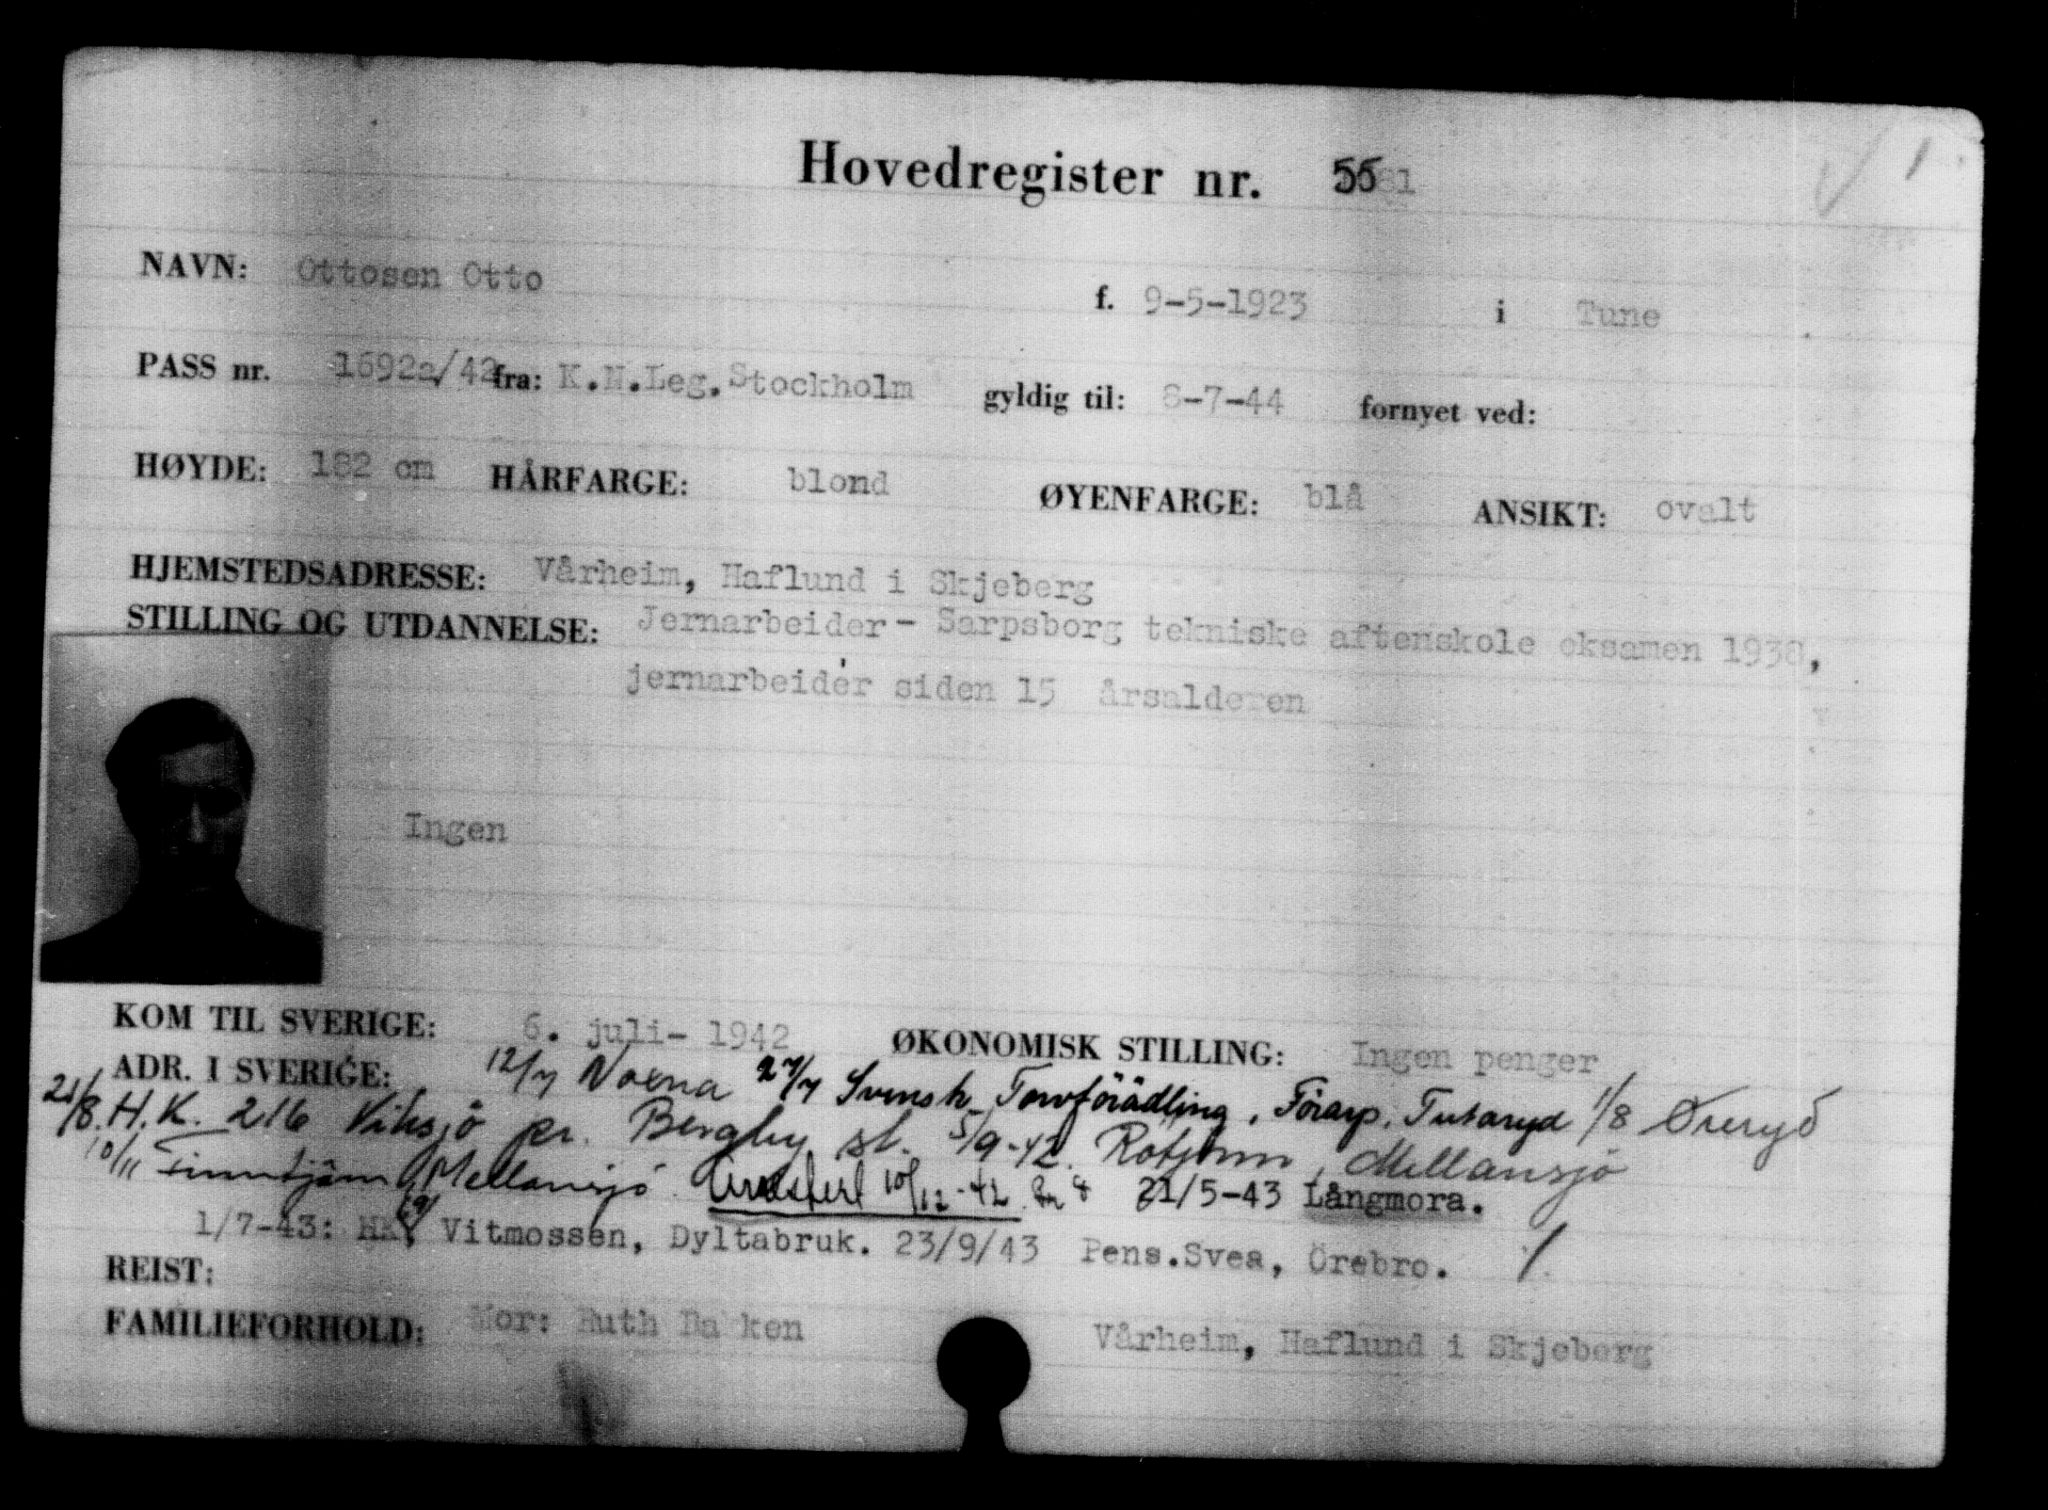 1
Hovedregister nr. 5581
NAVN: Ottosen Otto f. 9-5-1923 i Tune
PASS nr. 1692a/42 fra: K.N.Leg.Stockholm gyldig til: 8-7-44 fornyet ved:
HØYDE: 182 cm HÅRFARGE: blond ØYENFARGE: blå ANSIKT: ovalt
HJEMSTEDSADRESSE: Vårheim, Haflund i Skjeberg
STILLING OG UTDANNELSE: Jernarbeider - Sarpsborg tekniske aftenskole eksamen 1938,
jernarbeider siden 15 årsalderen
Ingen
KOM TIL SVERIGE: 6. juli- 1942 ØKONOMISK STILLING: Ingen penger
ADR. I SVERIGE: 12/7 Norna 27/7 Svensk Torvförädling, Förarp, Tutaryd 1/8 Öreryd
21/8. H.K. 216 Viksjö pr. Bergby st. 5/9-42. Rotjärn, Mellansjö
10/11 Finntjärn, Mellansjö. Arrestert 10/12-42 21/5-43 Långmora.
1/7-43: HK Vitmossen, Dyltabruk. 23/9/43 Pens.Svea, Örebro.
REIST:
FAMILIEFORHOLD: Mor: Ruth Bakken Vårheim, Haflund i Skjeberg